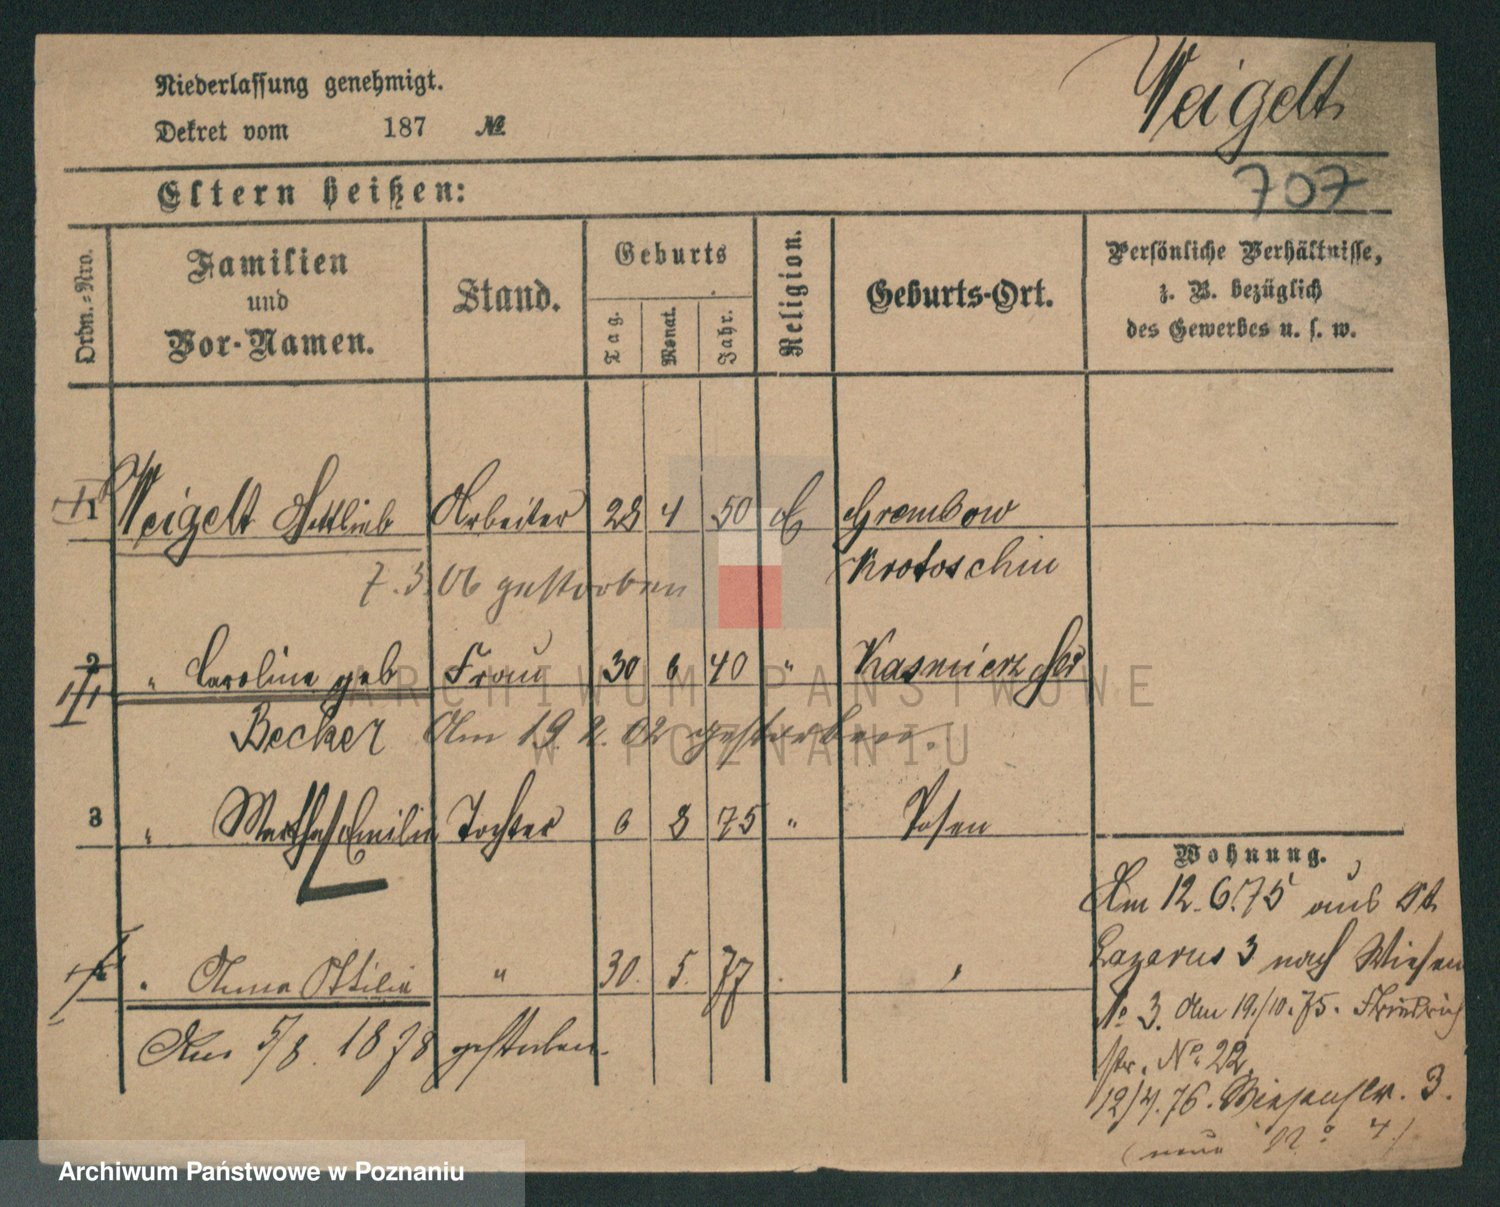 Niederlassung genehmigt.
Weigelt
Dekret vom 187 №
707
Eltern heißen:
Ordn.-Nro. Familien und Vor-Namen. Stand. Geburts Tag. Monat. Jahr. Religion. Geburts-Ort. Persönliche Verhältnisse, z. B. bezüglich des Gewerbes u. s. w.
1 Weigelt Gottlieb Arbeiter 28 4 50 Grembow
7.3.06 gestorben Krotoschin
2 " Caroline geb Frau 30 6 40 " Kasmierz
Becker Am 19.2.02 gestorben.
3 " Martha Emilie Tochter 6 8 75 " Posen
Wohnung.
Am 12.6.75 aus St.
Lazarus 3 nach Wiesen
4 " Anna Ottilie " 30. 5. 77
№ 3. Am 19./10.75. Friedrich
Am 5/8. 1878 gestorben.
str. No. 22.
12/4.76. Wiesenstr. 3.
(neue No 4)
ARCHIWUM PAŃSTWOWE
W POZNANIU
Archiwum Państwowe w Poznaniu